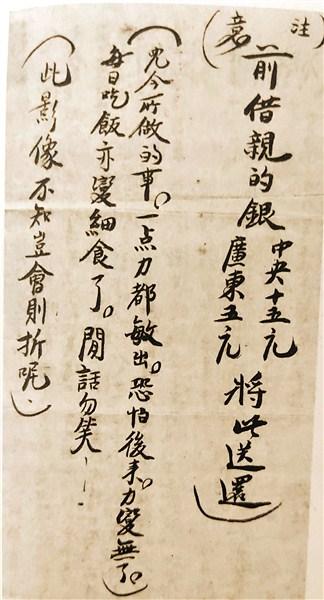 (注意)前借親的銀 中央十五元 廣東五元 將此送還)
(兒今所做的事。一点力都敏出。恐怕後来。力變無了。)
每日吃飯亦變細食了。閒話勿笑!
(此影像不知豈會則折呢)